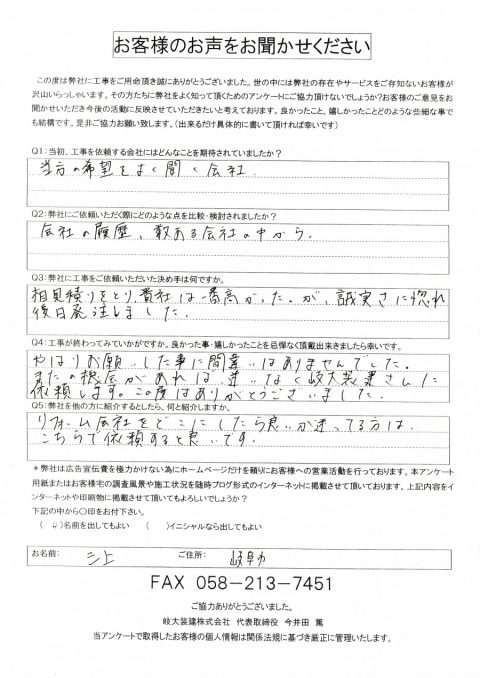 お客様のお声をお聞かせください
この度は弊社に工事をご用命頂き誠にありがとうございました。世の中には弊社の存在やサービスをご存知ないお客様が
沢山いらっしゃいます。その方たちに弊社をよく知って頂くためのアンケートにご協力頂けないでしょうか?お客様のご意見をお
聞かせいただき今後の活動に反映させていただきたいと考えております。良かったこと、嬉しかったことどのような些細な事で
も結構です。是非ご協力お願い致します。（出来るだけ具体的に書いて頂ければ幸いです）
Q1:当初、工事を依頼する会社にはどんなことを期待されていましたか?
当方の希望をよく聞く会社.
Q2:弊社にご依頼いただく際にどのような点を比較・検討されましたか?
会社の履歴、数ある会社の中から.
Q3:弊社に工事をご依頼いただいた決め手は何ですか。
相見積りをとり、貴社は一番高かった.が、誠実さに惚れ
後日発注しました.
Q4:工事が終わってみていかがですか。良かった事・嬉しかったことを忌憚なく頂戴出来きましたら幸いです。
やはりお願いした事に間違いはありませんでした.
またの機会があれば迷いなく岐大装業さんに
依頼します。この度はありがとうございました.
Q5:弊社を他の方に紹介するとしたら、何と紹介しますか。
リフォーム会社をどこにしたら良いか迷ってる方は、
こちらで依頼すると良いです.
＊弊社は広告宣伝費を極力かけない為にホームページだけを頼りにお客様への営業活動を行っております。本アンケート
用紙またはお客様宅の調査風景や施工状況を随時ブログ形式のインターネットに掲載させて頂いております。上記内容をイ
ンターネットや印刷物に掲載させて頂いてもよろしいでしょうか?
下記の中から○印をお付下さい。
（○）名前を出してもよい　（　）イニシャルなら出してもよい
お名前: 三上 ご住所: 岐阜市
FAX 058－213－7451
ご協力ありがとうございました。
岐大装建株式会社 代表取締役 今井田 篤
当アンケートで取得したお客様の個人情報は関係法規に基づき厳正に管理いたします。